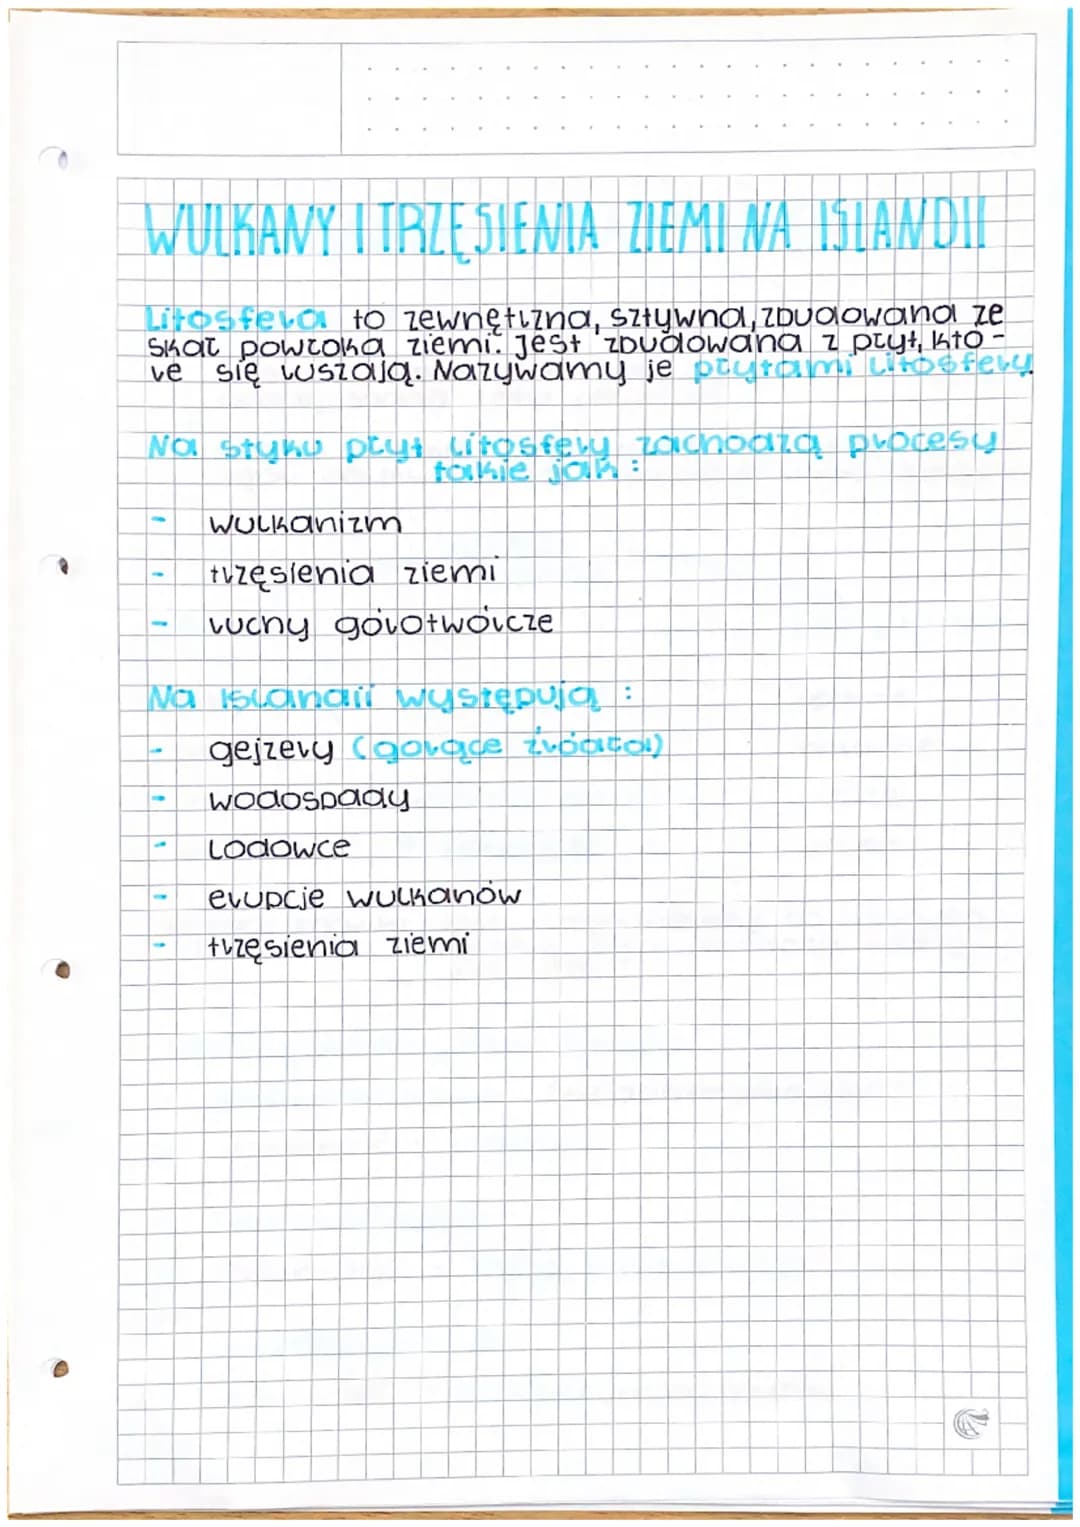 WULKANY I TRZĘSIENIA ZIEMI NA ISLANDII
Litosfera to zewnętrzna, sztywna, zbudowana ze
skał powłoka ziemi. Jest zbudowana z płyt, któ-
re się ruszają. Nazywamy je płytami litosfery
Na styku płyt litosfery zachodzą procesy
takie jak :
- wulkanizm
- trzęsienia ziemi
- ruchy górotwórcze
Na Islandii występują :
- gejzery (gorące źródła)
- wodospady
- Lodowce
- erupcje wulkanów
- trzęsienia ziemi